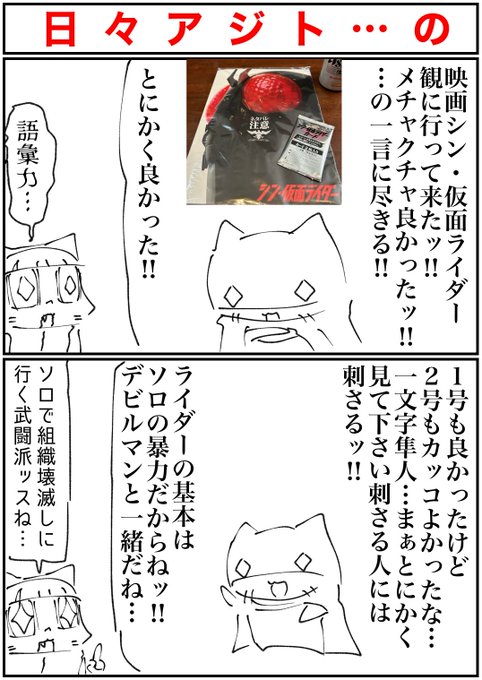 日々アジト…の
映画シン・仮面ライダー
観に行って来たッ!!
メチャクチャ良かったッ!!
…の一言に尽きる!!
ネタバレ
注意
シン・仮面ライダー
とにかく良かった!!
語彙力…
1号も良かったけど
2号もカッコよかったな…
一文字隼人…まぁとにかく
見て下さい刺さる人には
刺さるッ!!
ライダーの基本は
ソロの暴力だからねッ!!
デビルマンと一緒だね…
ソロで組織壊滅しに
行く武闘派ッスね…